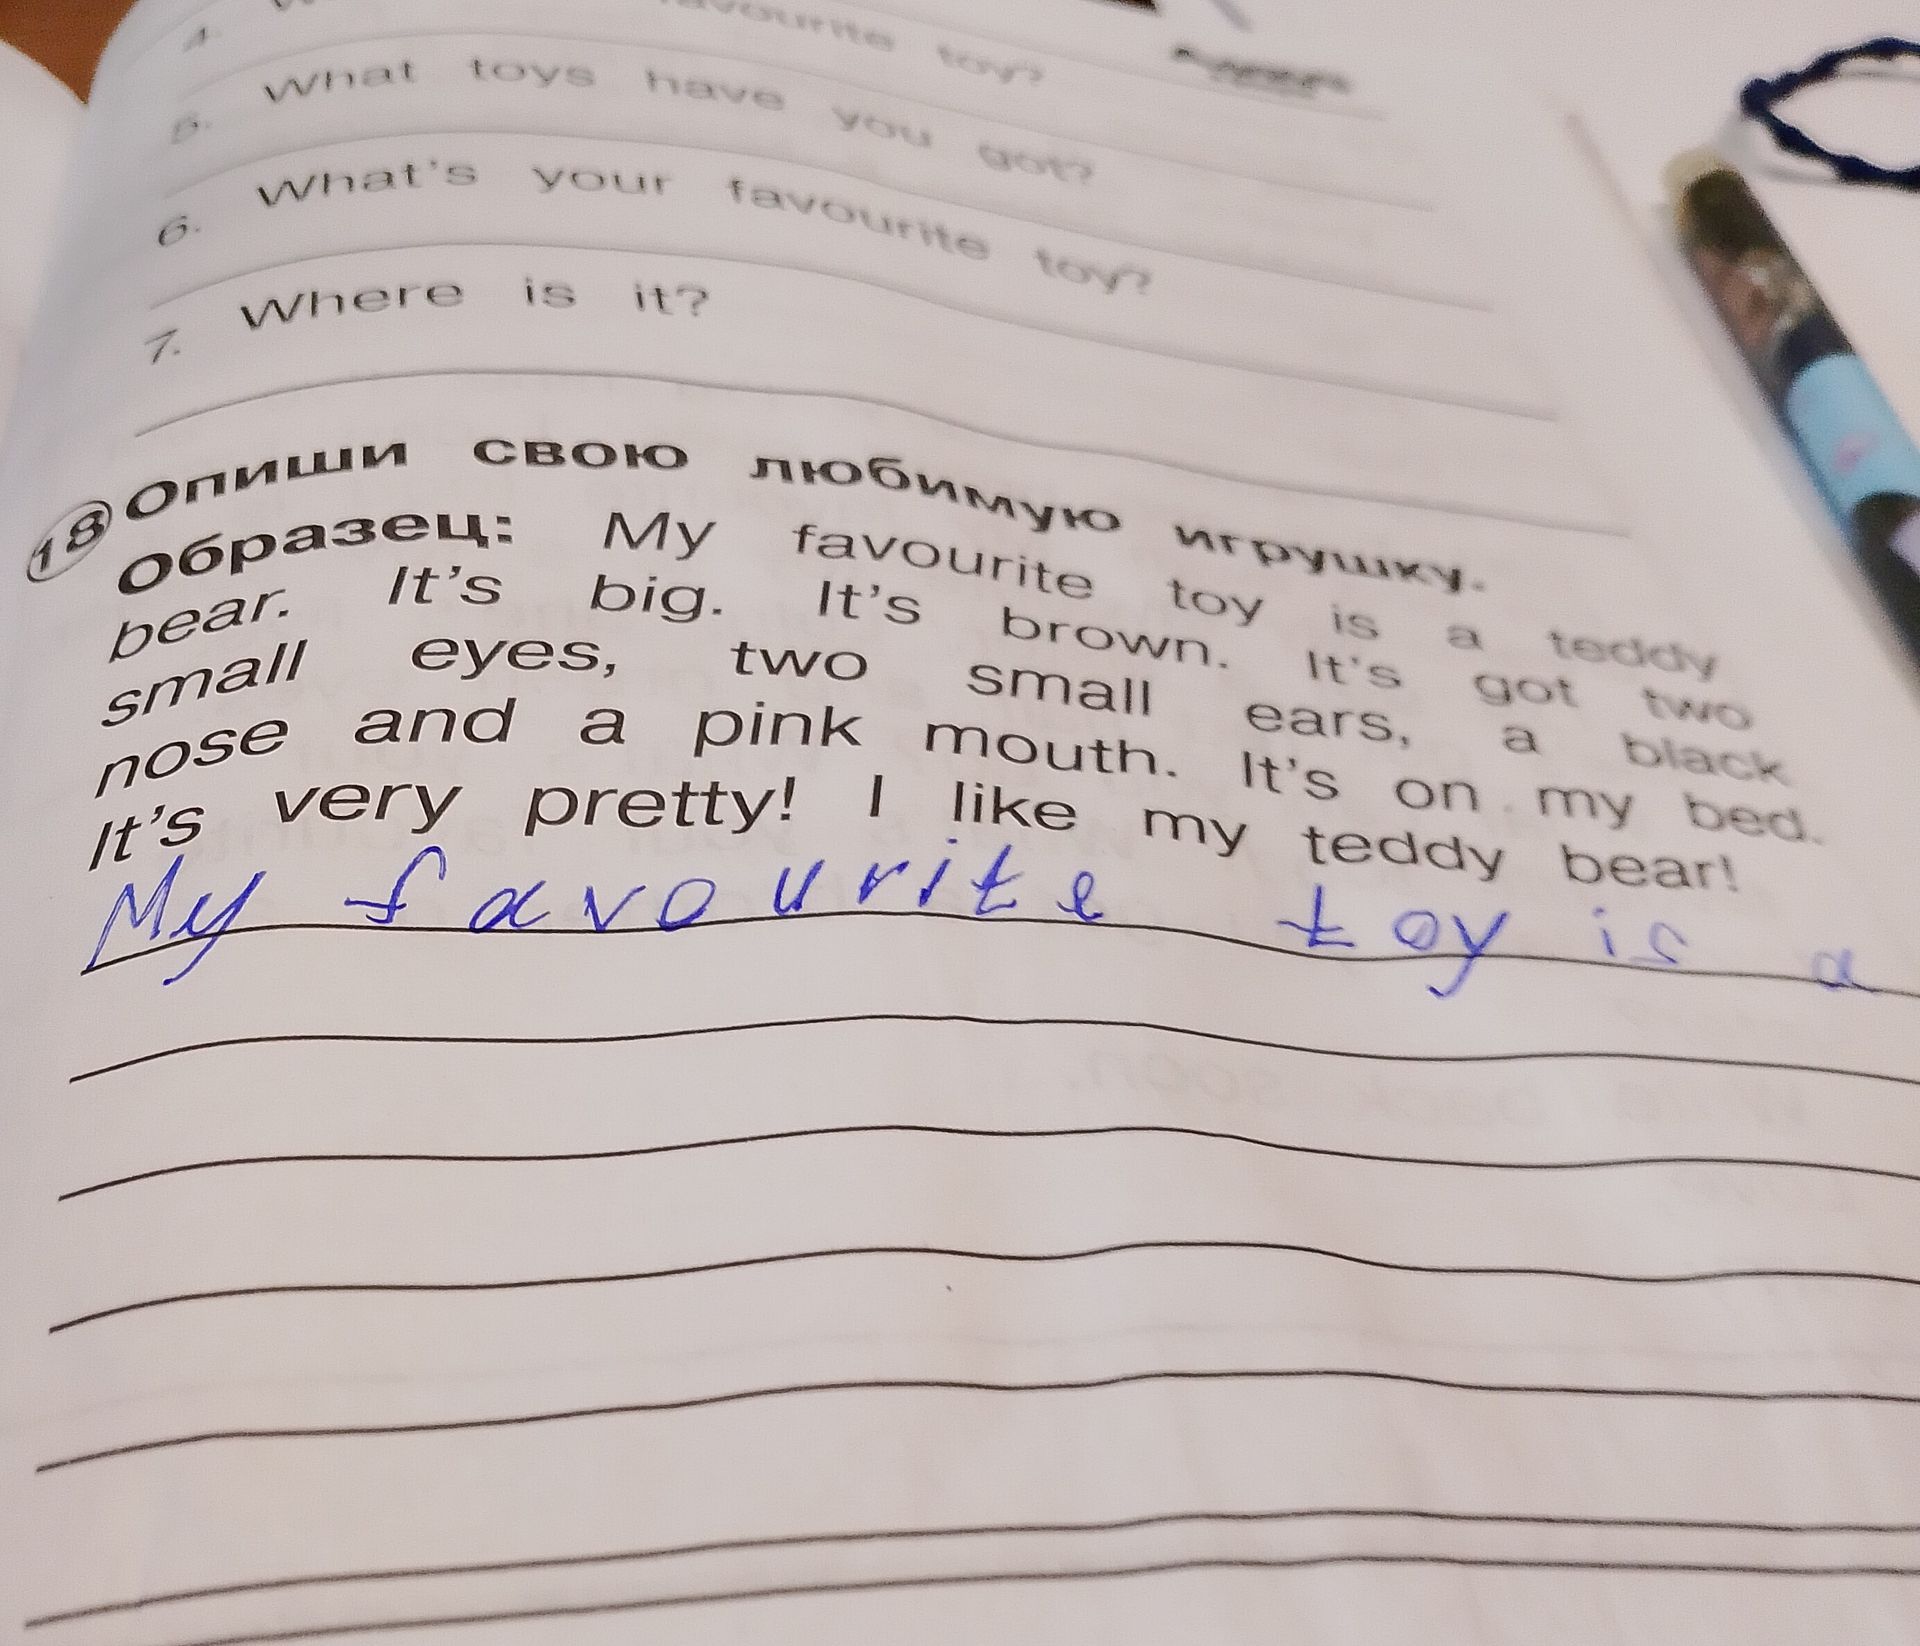 4. favourite toy?
5. What toys have you got?
6. What's your favourite toy?
7. Where is it?
18 Опиши свою любимую игрушку.
Образец: My favourite toy is a teddy
bear. It's big. It's brown. It's got two
small eyes, two small ears, a black
nose and a pink mouth. It's on my bed.
It's very pretty! I like my teddy bear!
My favourite toy is a